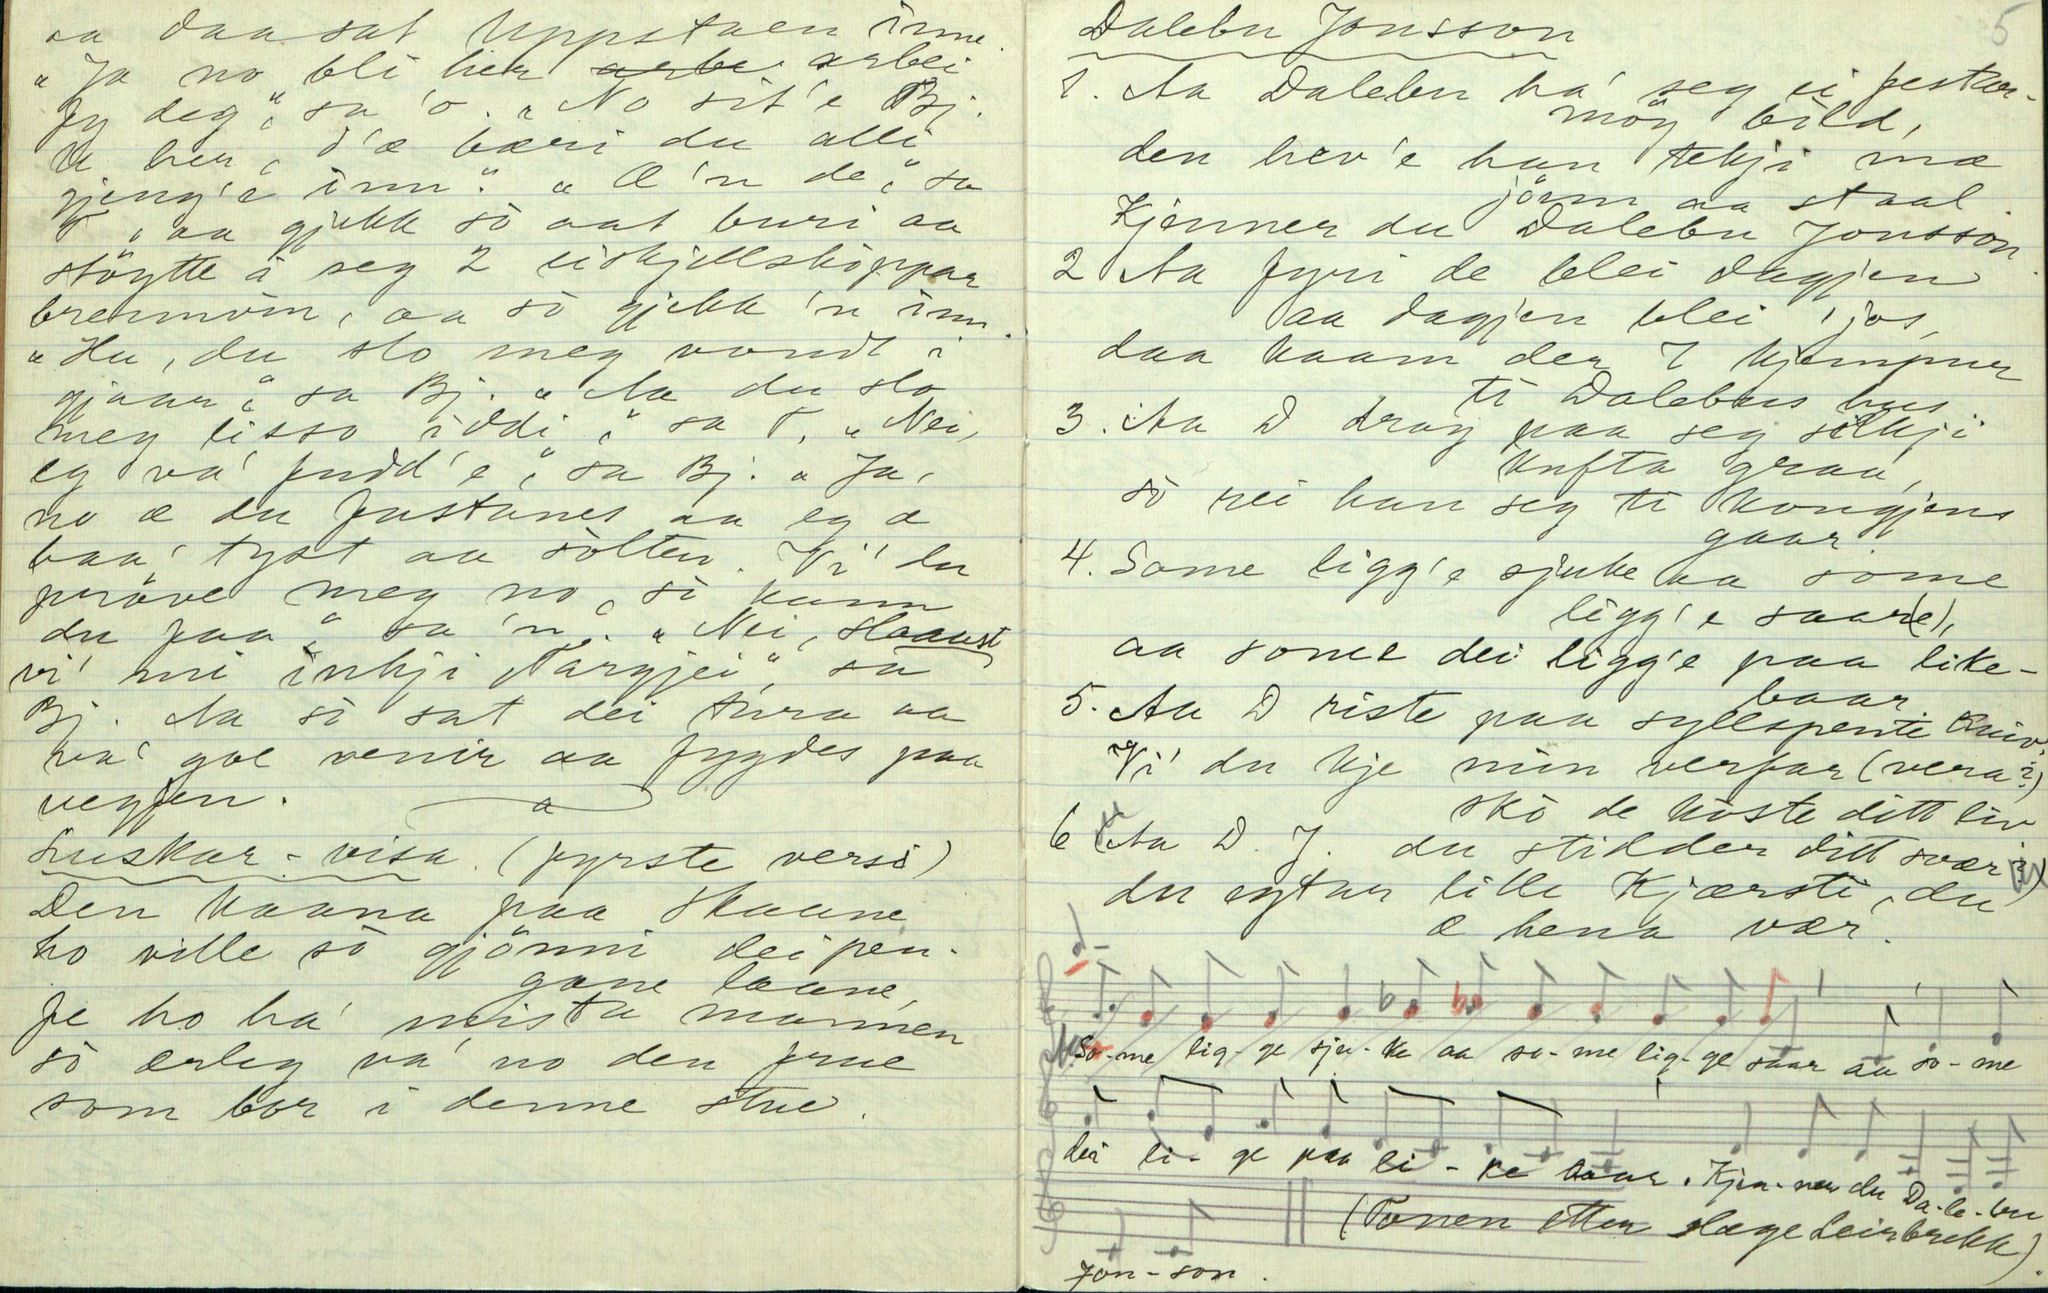 aa daa sat Uppstaen inne.
"Ja no bli her arbe arbei
fy deg," sa 'o. "No sit'e Bj.
U her, d'æ bæri du alli
gjeng'e inn." "Æ'n de," sa
T, aa gjekk sò aat buri aa
stöytte i seg 2 eiskjellskoppar
brennvin, aa sò gjekk 'n inn.
"Hu, du slo meg vondt i
gjaar," sa Bj. "Aa du slo
meg lisso iddi," sa T. "Nei,
eg va' fudd'e," sa Bj. "Ja,
no æ du fastanes aa eg æ
baa' tyst aa sòlten. Vi' du
pröve meg no, sò kann
du faa" sa 'n. "Nei, slaaast
vi' mi inkji Targjei", sa
Bj. Aa sò sat dei tura aa
va' goe venir aa fygdes paa
vegjen.
Luskar-visa. (fyrste versi)
Den kaana paa Skaane
ho ville sò gjönni dei pen-
gane laane,
fe ho ha' mista mannen
sò ærleg va' no den frue
som bor i denne stue.
5
Dalebu Jonsson
1. Aa Dalebu ha' seg ei festar-
möy bild,
den hev'e han tekji mæ
jönn aa staal.
Kjenner du Dalebu Jonsson.
2 Aa fyri de blei dagjen
aa dagjen blei ljos,
daa kaam der 7 kjempur
ti Dalebus hus
3. Aa D drog paa seg silkji
kufta graa,
sò rei han seg ti kongjens
gaar.
4. Some ligg'e sjuke aa some
ligg'e saar(e),
aa some dei ligg'e paa like-
baar.
5. Aa D riste paa syllspente kniv:
Vi' du kje min verfar (vera?)
skò de koste ditt liv
6 Aa D. J. du stidder ditt svær
du eytar lille Kjærsti, du
æ hena vær.
So-me lig-ge sju-ke aa so-me lig-ge saar aa so-me
dei li-ge paa li-ke baar. Kjen-ner du Da-le-bu
(Tonen etter Slæge Leirbrekk).
Jon-son.